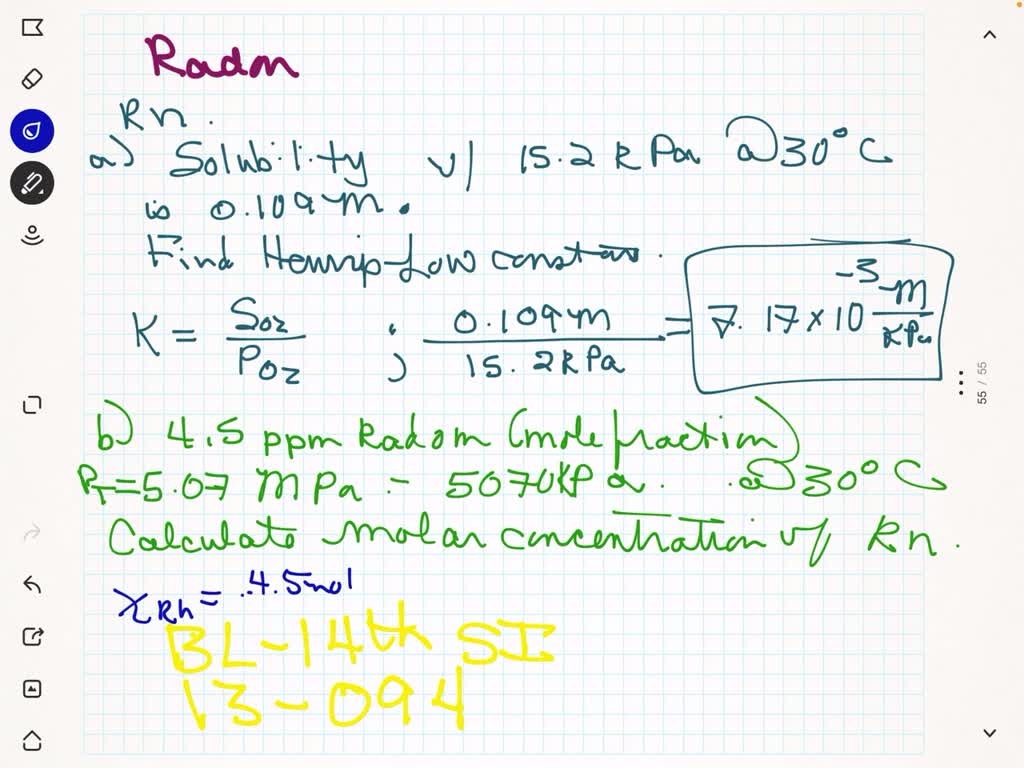 Radon
Rn.
a) Solubility v/ 15.2 kPa @30°C
is 0.109 M.
Find Henry-Law constan.
K = S₀₂/P₀₂ ; 0.109 M / 15.2 kPa = 7.17×10⁻³ M/kPa
b) 4.5 ppm Radom (mole fraction)
P_T = 5.07 MPa = 5070 kPa. @30°C
Calculate molar concentration of Rn.
χ_Rn = 4.5mol
BL-14th SI
13-094
55 / 55